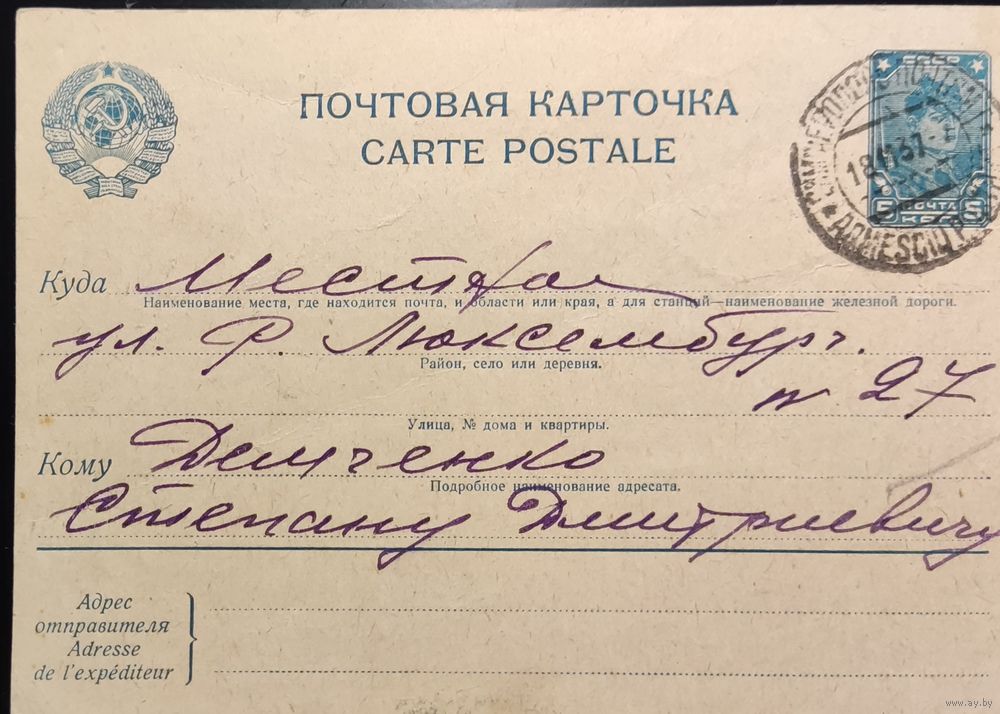 ПОЧТОВАЯ КАРТОЧКА
CARTE POSTALE
СССР
18 11 37
5 ПОЧТА 5
КОП
Куда Местная
Наименование места, где находится почта, и области или края, а для станций—наименование железной дороги.
ул. Р. Люксембург.
Район, село или деревня.
27
Улица, № дома и квартиры.
Кому Демченко
Подробное наименование адресата.
Степану Дмитриевичу
Адрес
отправителя
Adresse
de l'expéditeur
www.ay.by